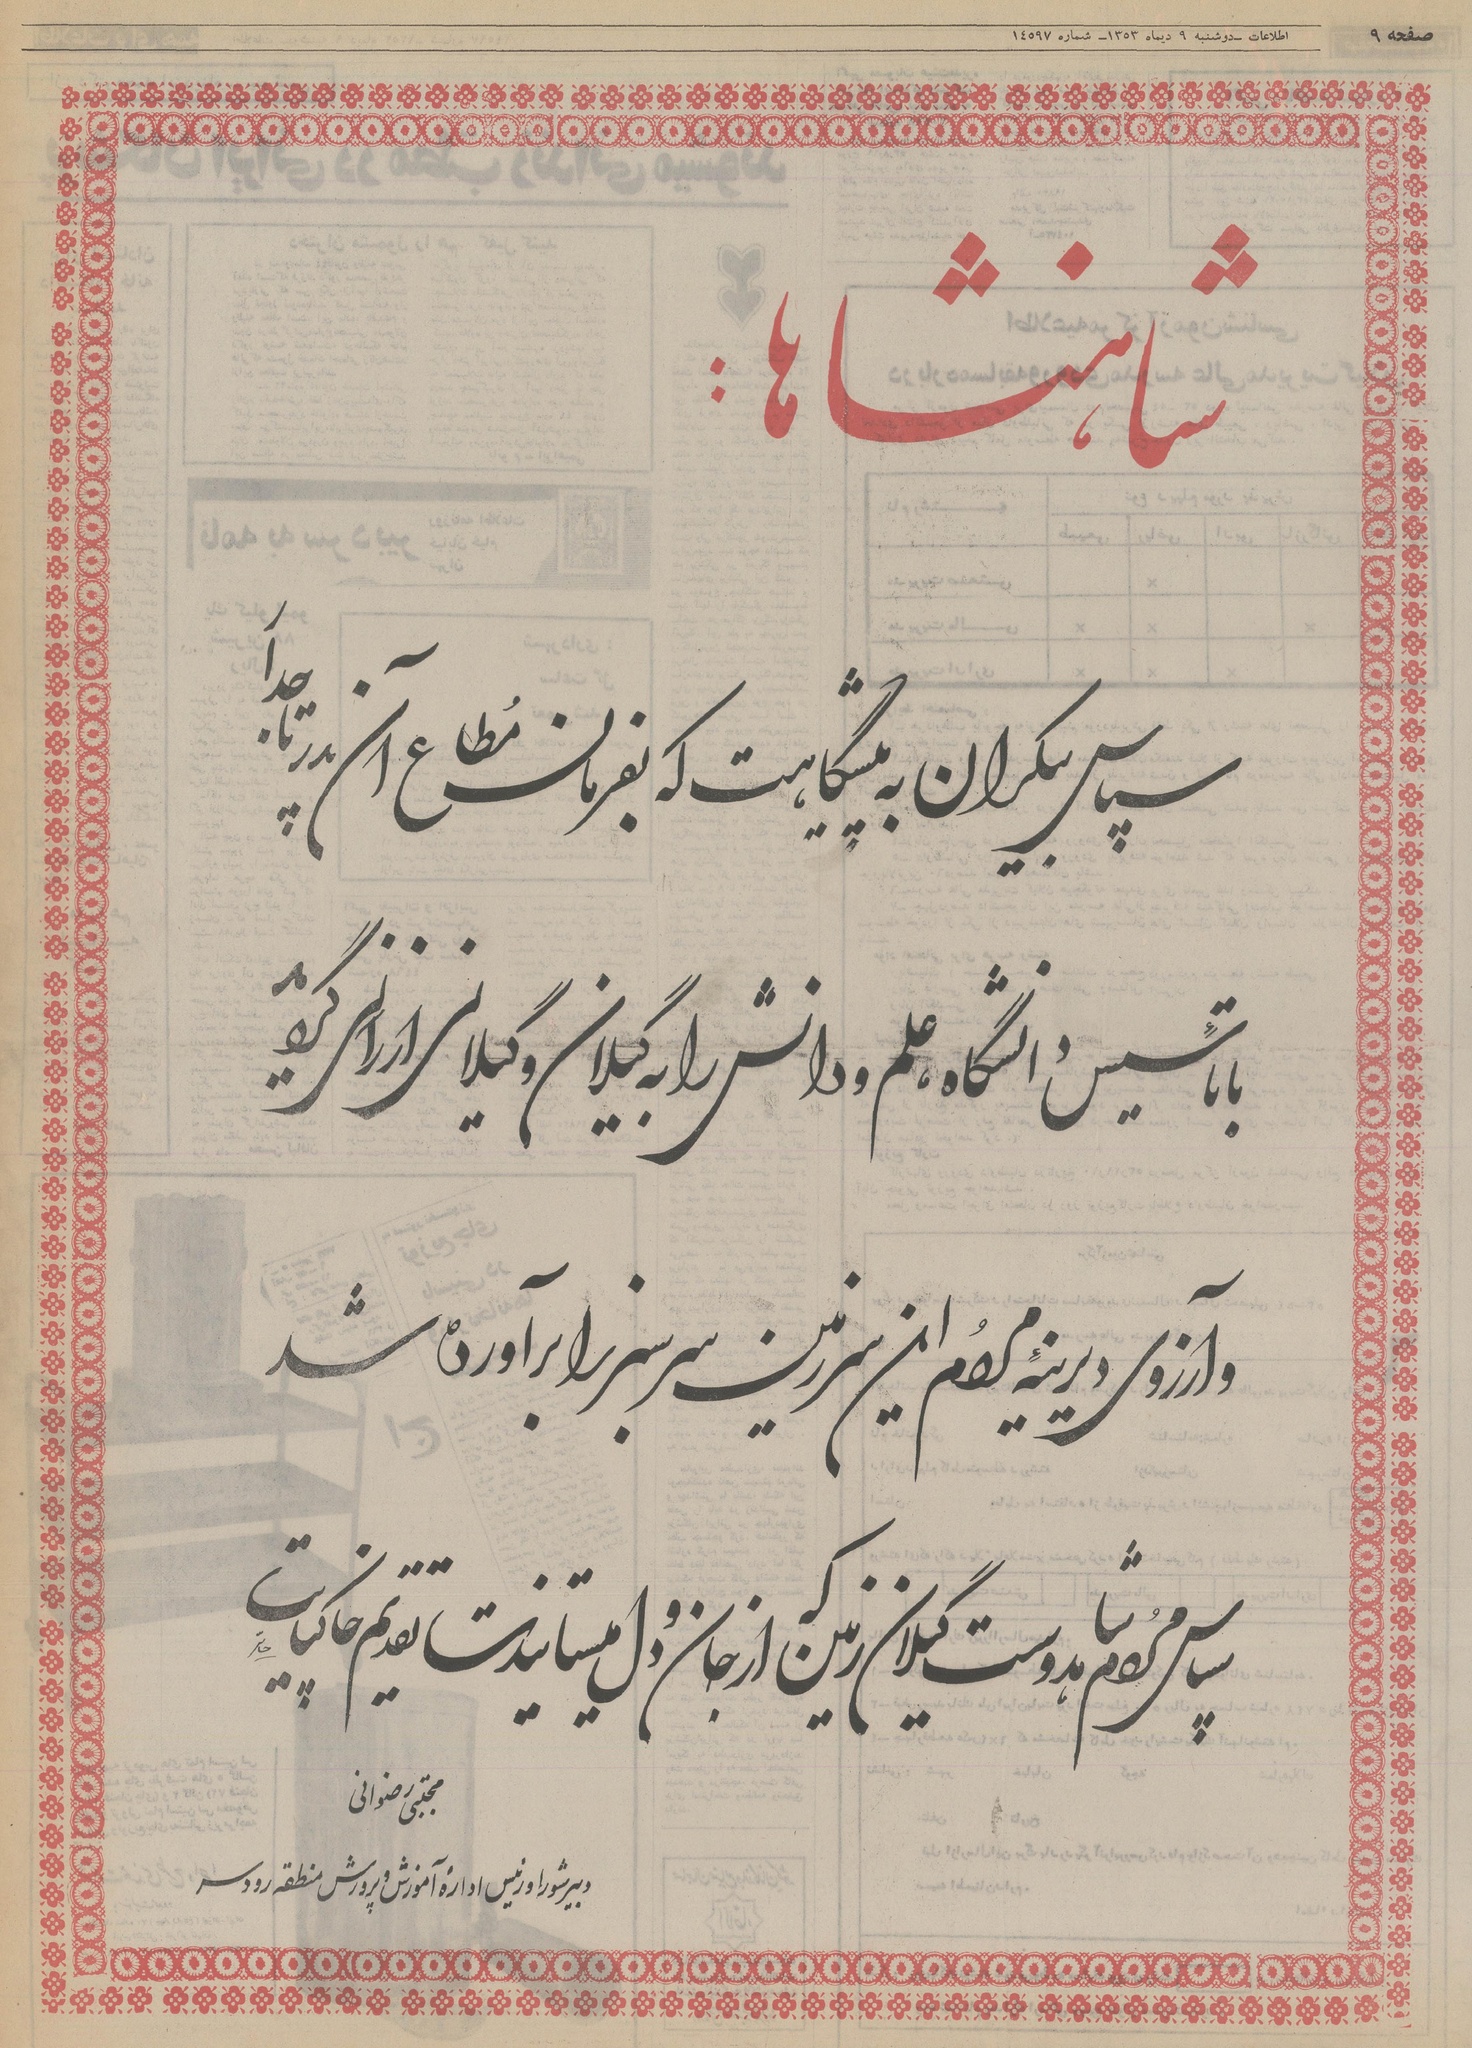 صفحه ۹
اطلاعات ـ دوشنبه ۹ دیماه ۱۳۵۳ـ شماره ۱۴۵۹۷
شاهنشاها:
سپاس بیکران به پیشگاهت که بفرمان مُطاع آن پدر تاجدار
با تأسیس دانشگاه، علم و دانش را به گیلان و گیلانی ارزانی گردید
و آرزوی دیرینهٔ مردُم این سرزمین سرسبز را برآورده شد
سپاس مردُم شاهدوست گیلان زمین که از جان و دل میستایندت تقدیم خاکپایت
مجتبی رضوانی
دبیر شورا و رئیس ادارهٔ آموزش و پرورش منطقه رودسر